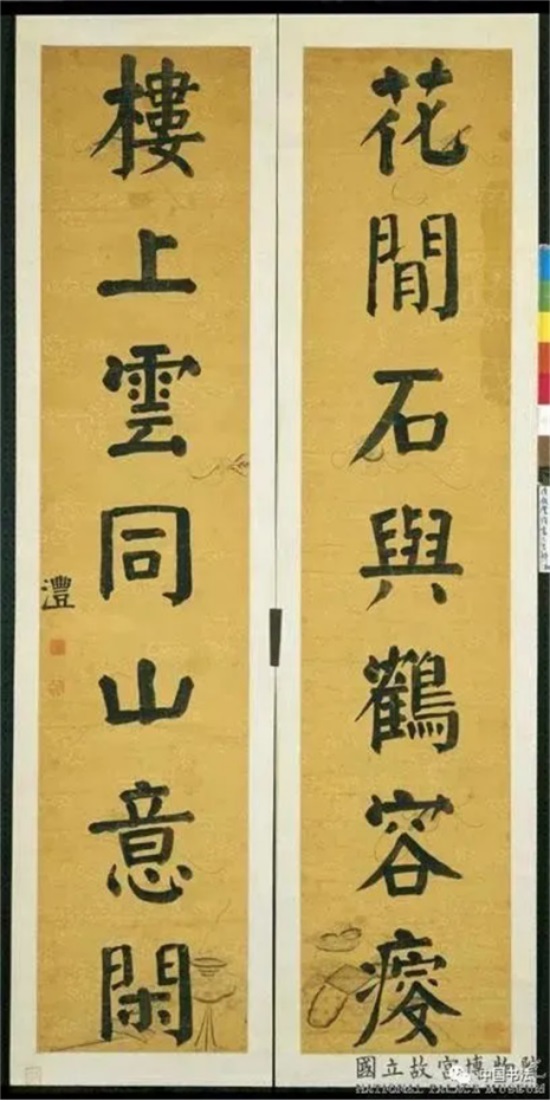 花間石與鶴容瘦
樓上雲同山意閑
灃
國立故宮博物院
NATIONAL PALACE MUSEUM
中国书法